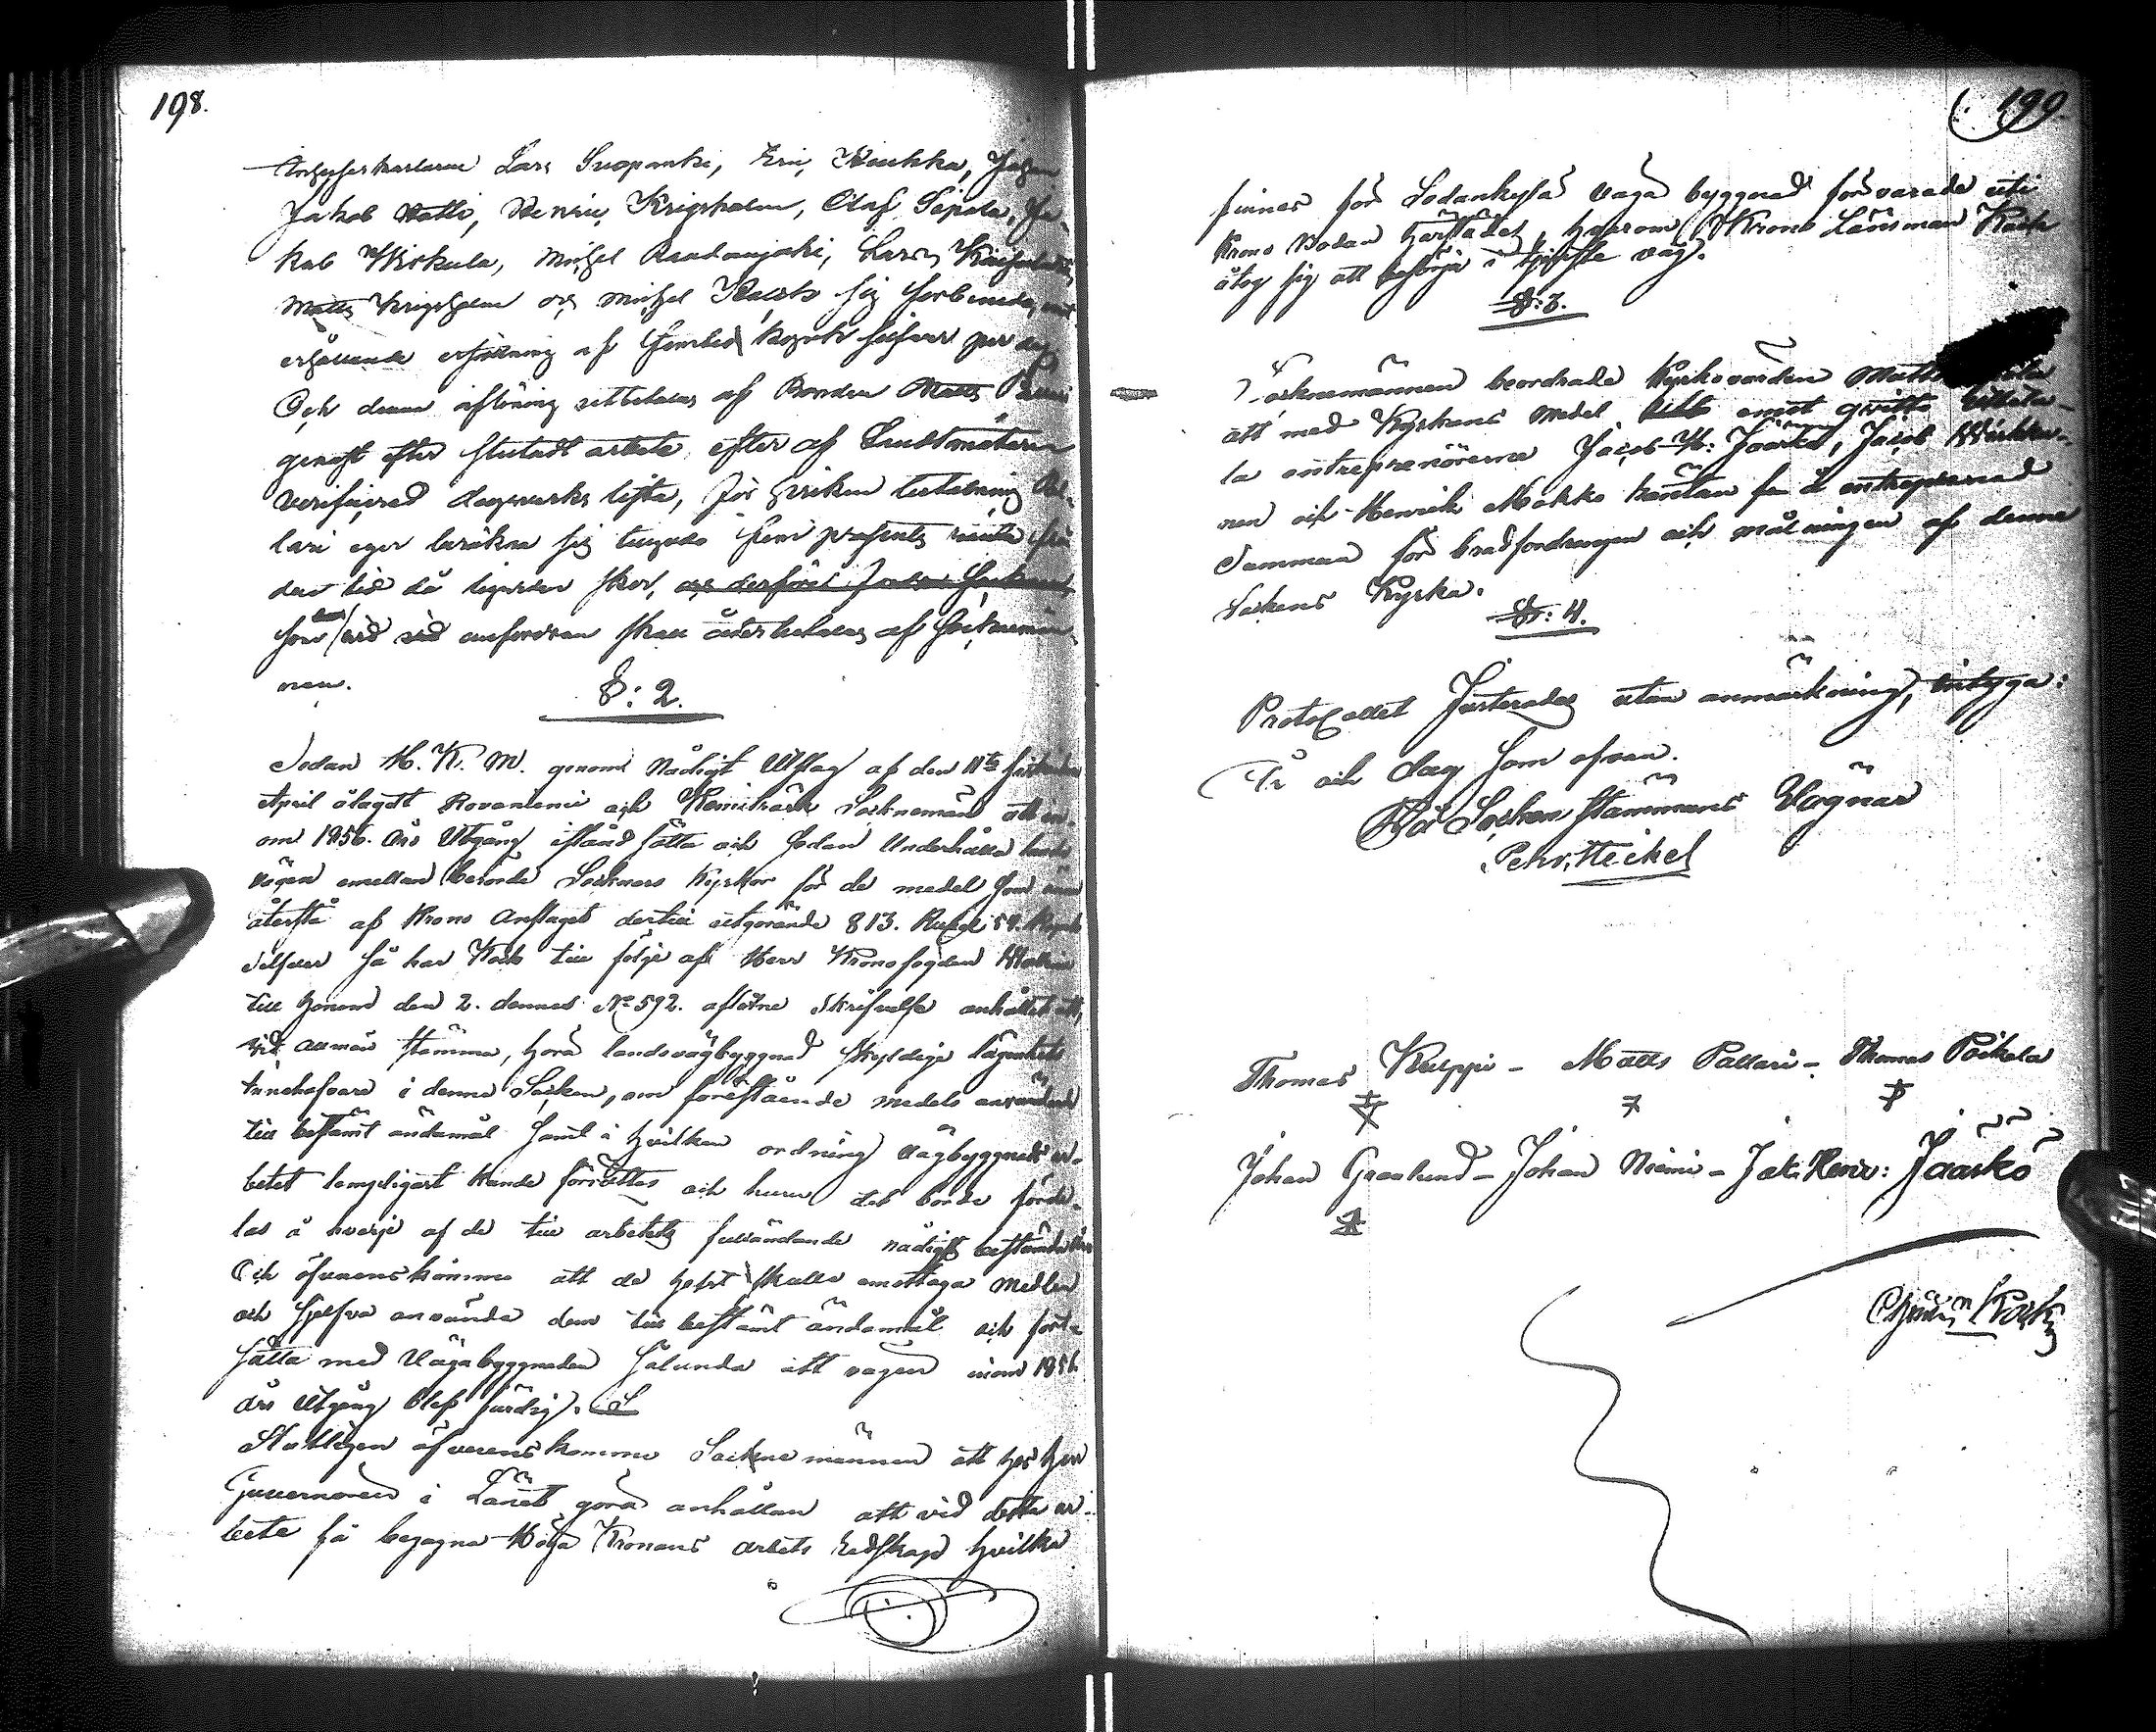 198.
Lars Suopanki, Eric, Kaukka, Johan
Jakob Matti, Henric Krigsholm, Olaf Sipola, Ja-
kob Wirkula, Michel Raudanjoki, Lars
Matts Krigsholm och Michel sig förbundo, mot
erhållande ersättning af femtio Kopek silfver per dag
Och denna aflöning utbetalas af Bonden Matts Pallari
genast efter slutadt arbete, efter af Landtmätaren
verificerad dagsverks lista, för hvilken utbetalning Pal-
lari eger beräkna sig tjugufem procents ränta från
den tid då liqviden sker, och derföre
som vid anfordran skall återbetalas af Socknemän-
nen.
§: 2.
Sedan H. K. M. genom Nådigt Utslag af den 11te sistledne
April ålagdt Rovaniemi och Kemiträsk Socknemän att in-
om 1856. års Utgång istånd sätta och sedan Underhålla lands
vägen emellan berörde Socknars Kyrkor för de medel som ännu
återstå af Krono Anslaget dertill utgörande 813. Rubel 54. Kopek
Silfver så har Kock till följe af Herr Kronofogden
till honom den 2. dennes No 592. aflåtne Skrifvelse anhållit att,
vid allmän stämma, höra landsvägbyggnad skyldige lägenhets
innehafvare i denne Socken, om förestående medels användande
till bestämt ändamål samt i hvilken ordning vägbyggnads ar-
betet lämpligast kunde förrättas och huru det borde förde-
las å hvarje af de till arbetets fulländande nådigst bestämda åren
Och öfverenskommo att de helst skulle emottaga medlen
och sjelfva använda dem till bestämt ändamål och fort-
sätta med Vägabyggnaden sålunda att vägen inom 1856
års Utgång blef färdig.
Slutligen öfverenskommo Socknemännen att hos Herr
Guvernören i Länet göra anhållan att vid detta ar-
bete få begagna Höga Kronans arbets redskap hvilka
199.
finnes för Sodankylä väga byggnad förvarade uti
Krono Bodan härstädes, hvarom Krono Länsman Kock
åtog sig att besörja i skrifte väg.
§: 3.
Socknemännen beordrade Kyrkovärden Matts
att med Kyrkans medel emot qvitto utbeta-
la entreprenörerne Jacob H: Jaarko, Jacob
nen och Henrik Mokko hvardan för de entreprenad
Summan för brädfordringen och målningen af denne
Sockens Kyrka.
§: 4.
Protocollet Justerades utan anmärkning, intyga:
År och dag som ofvan.
På Sockenstämmans Vägnar
Pehr. Heikel
Thomas Kulppi - Matts Pallari - Thomas Poikela
Johan Graalund - Johan Niemi - Jak: Henr: Jaarko
Kock